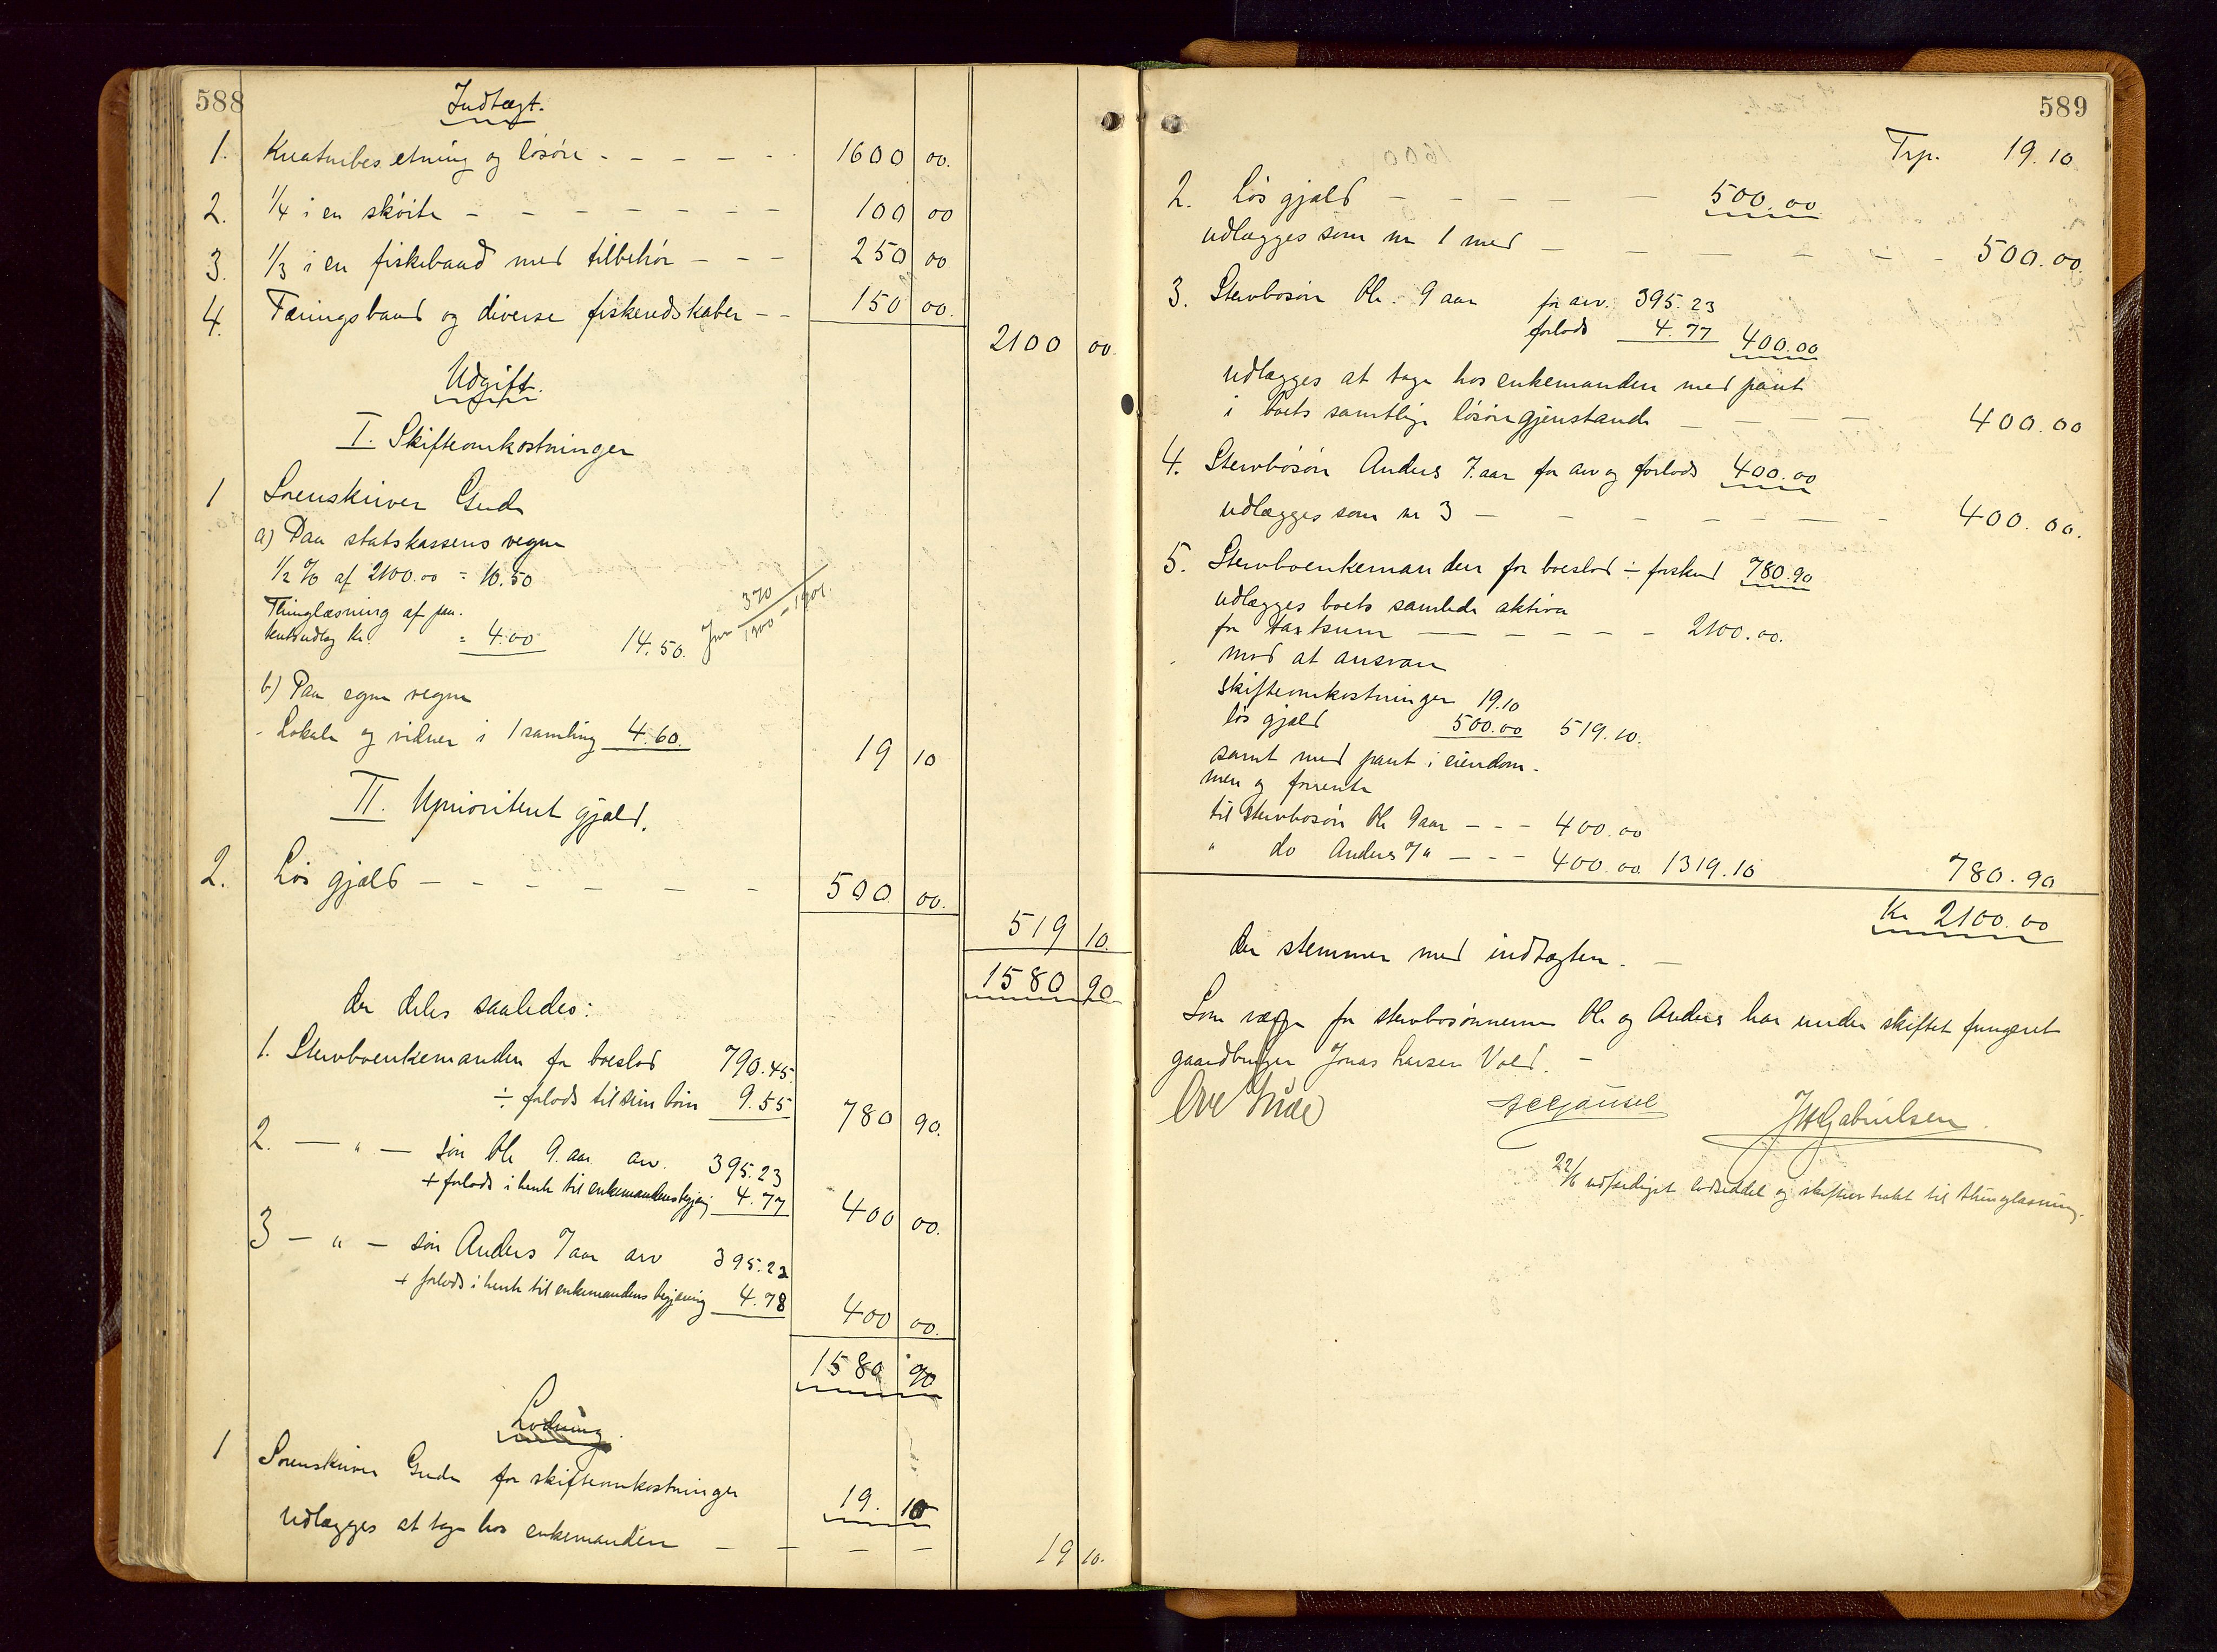 588
Indtægt.
1. Kreaturbesetning og løsøre - - - - - 1600 00.
2. 1/4 i en skøite - - - - - - - 100 00
3. 1/3 i en fiskebaad med tilbehør - - - 250 00
4. Færingsbaad og diverse fiskeredskaber - - 150 00.
2100 00.
Udgift.
I. Skifteomkostninger
1 Sorenskriver Gude
a) Paa statskassens vegne
1/2 % af 2100.00 = 10.50
Thinglæsning af pan-
teudlæg Kr. = 4.00 14.50. Jnr 370/1300 - 1901.
b) Paa egne vegne
- Lokale og vidner i 1 samling 4.60. 19 10
II. Uprioriteret gjæld.
2. Løs gjæld - - - - - - 500 00.
519 10.
1580 90
der deles saaledes:
1. Stervboenkemanden for boeslod 790.45.
÷ forlods til sine børn 9.55 780 90.
2. — " — søn Ole 9 aar arv. 395.23
+ forlods i henh til enkemandens begjæring 4.77 400 00.
3 — " — søn Anders 7 aar arv 395.22
+ forlods i henh til enkemandens begjæring 4.78 400 00.
1580 90
Lodning.
1 Sorenskriver Gude for skifteomkostninger 19. 10
udlægges at tage hos enkemanden - - - - 19 10.
589
Trp. 19.10
2. Løs gjæld - - - - - 500.00
udlægges som nr 1 med - - - - - - - 500.00.
3. Stervbosøn Ole 9 aar for arv. 395.23
forlods 4.77 400.00
udlægges at tage hos enkemanden med pant
i boets samtlige løsøregjenstande - - - - 400.00
4. Stervbosøn Anders 7 aar for arv og forlods 400.00
udlægges som nr 3 - - - - - - - 400.00.
5. Stervboenkemanden for boeslod ÷ forskud 780.90
udlægges boets samlede aktiva
for taxtsum - - - - - 2100.00.
mod at ansvare
skifteomkostninger 19.10
løs gjæld 500.00 519.10.
samt med pant i eiendom-
men og forrente
til stervbosøn Ole 9 aar - - - 400.00
" do Anders 7 " - - - 400.00 1319.10 780.90
Kr 2100.00
der stemmer med indtægten. -
Som værge for stervbosønnerne Ole og Anders har under skiftet fungeret
gaardbruger Jonas Larsen Vold. -
Ove Gude
J H Gabrielsen.
22/6 udfærdiget lodseddel og skifteextrakt til thinglæsning.